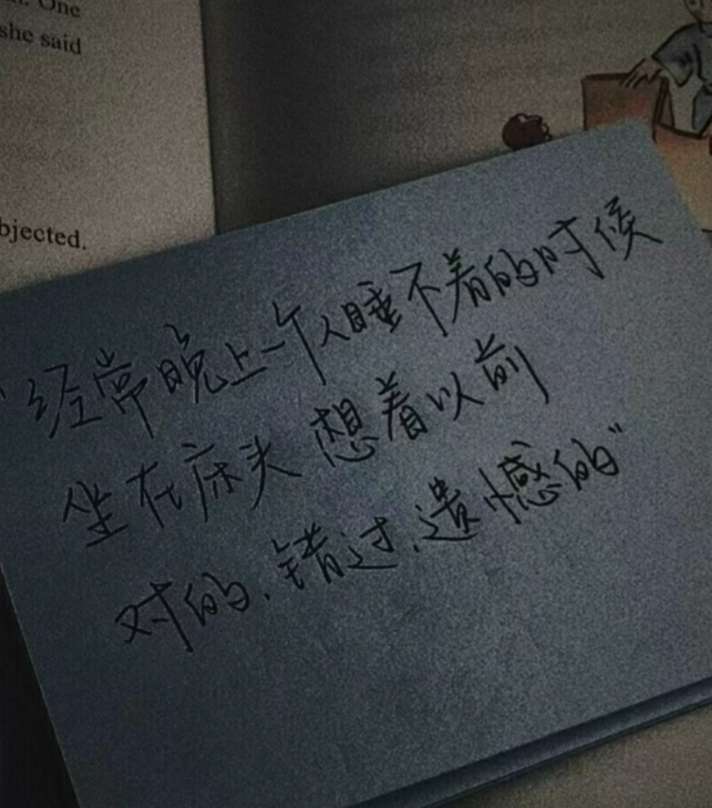 One
she said
bjected.
"经常晚上一个人睡不着的时候
坐在床头想着以前
对的.错过.遗憾的"